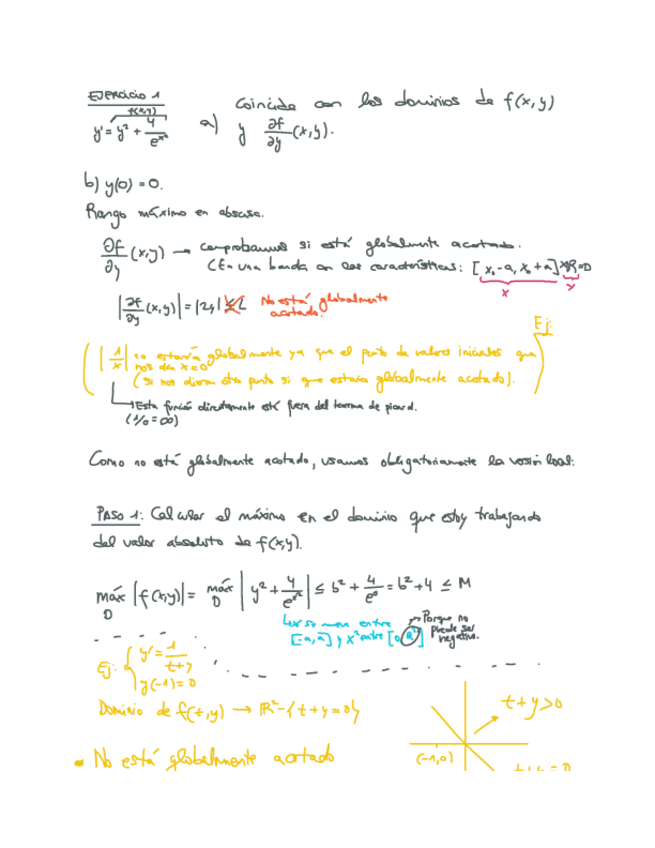 EJERCICIO 1
f(x,y)
y' = y² + 4/e^x²
a) Coincide con los dominios de f(x,y)
y ∂f/∂y (x,y).
b) y(0) = 0.
Rango máximo en abscisa.
∂f/∂y (x,y) → comprobamos si está globalmente acotado.
(En una banda con las características: [x₀-a, x₀+a]×ℝ=D
x y
|∂f/∂y (x,y)| = |2y| ≤ L No está globalmente
acotado.
Ej:
|1/x| no estaría globalmente ya que el punto de valores iniciales que
nos dan x=0
(si nos dieran otro punto si que estaría globalmente acotado).
Esta función directamente está fuera del teorema de picard.
(1/0 = ∞)
Como no está globalmente acotado, usamos obligatoriamente la versión local:
PASO 1: Calcular el máximo en el dominio que estoy trabajando
del valor absoluto de f(x,y).
máx_D |f(x,y)| = máx_D |y² + 4/e^x²| ≤ b² + 4/e⁰ = b² + 4 ≤ M
La x se mueve entre
[-a,a] y x² entre [0,a²]
Porque no
puede ser
negativo.
Ej: { y' = 1/(t+y)
y(-1) = 0
Dominio de f(t,y) → ℝ² - {t+y=0}
t+y>0
• No está globalmente acotado
(-1,0)
t+y=0